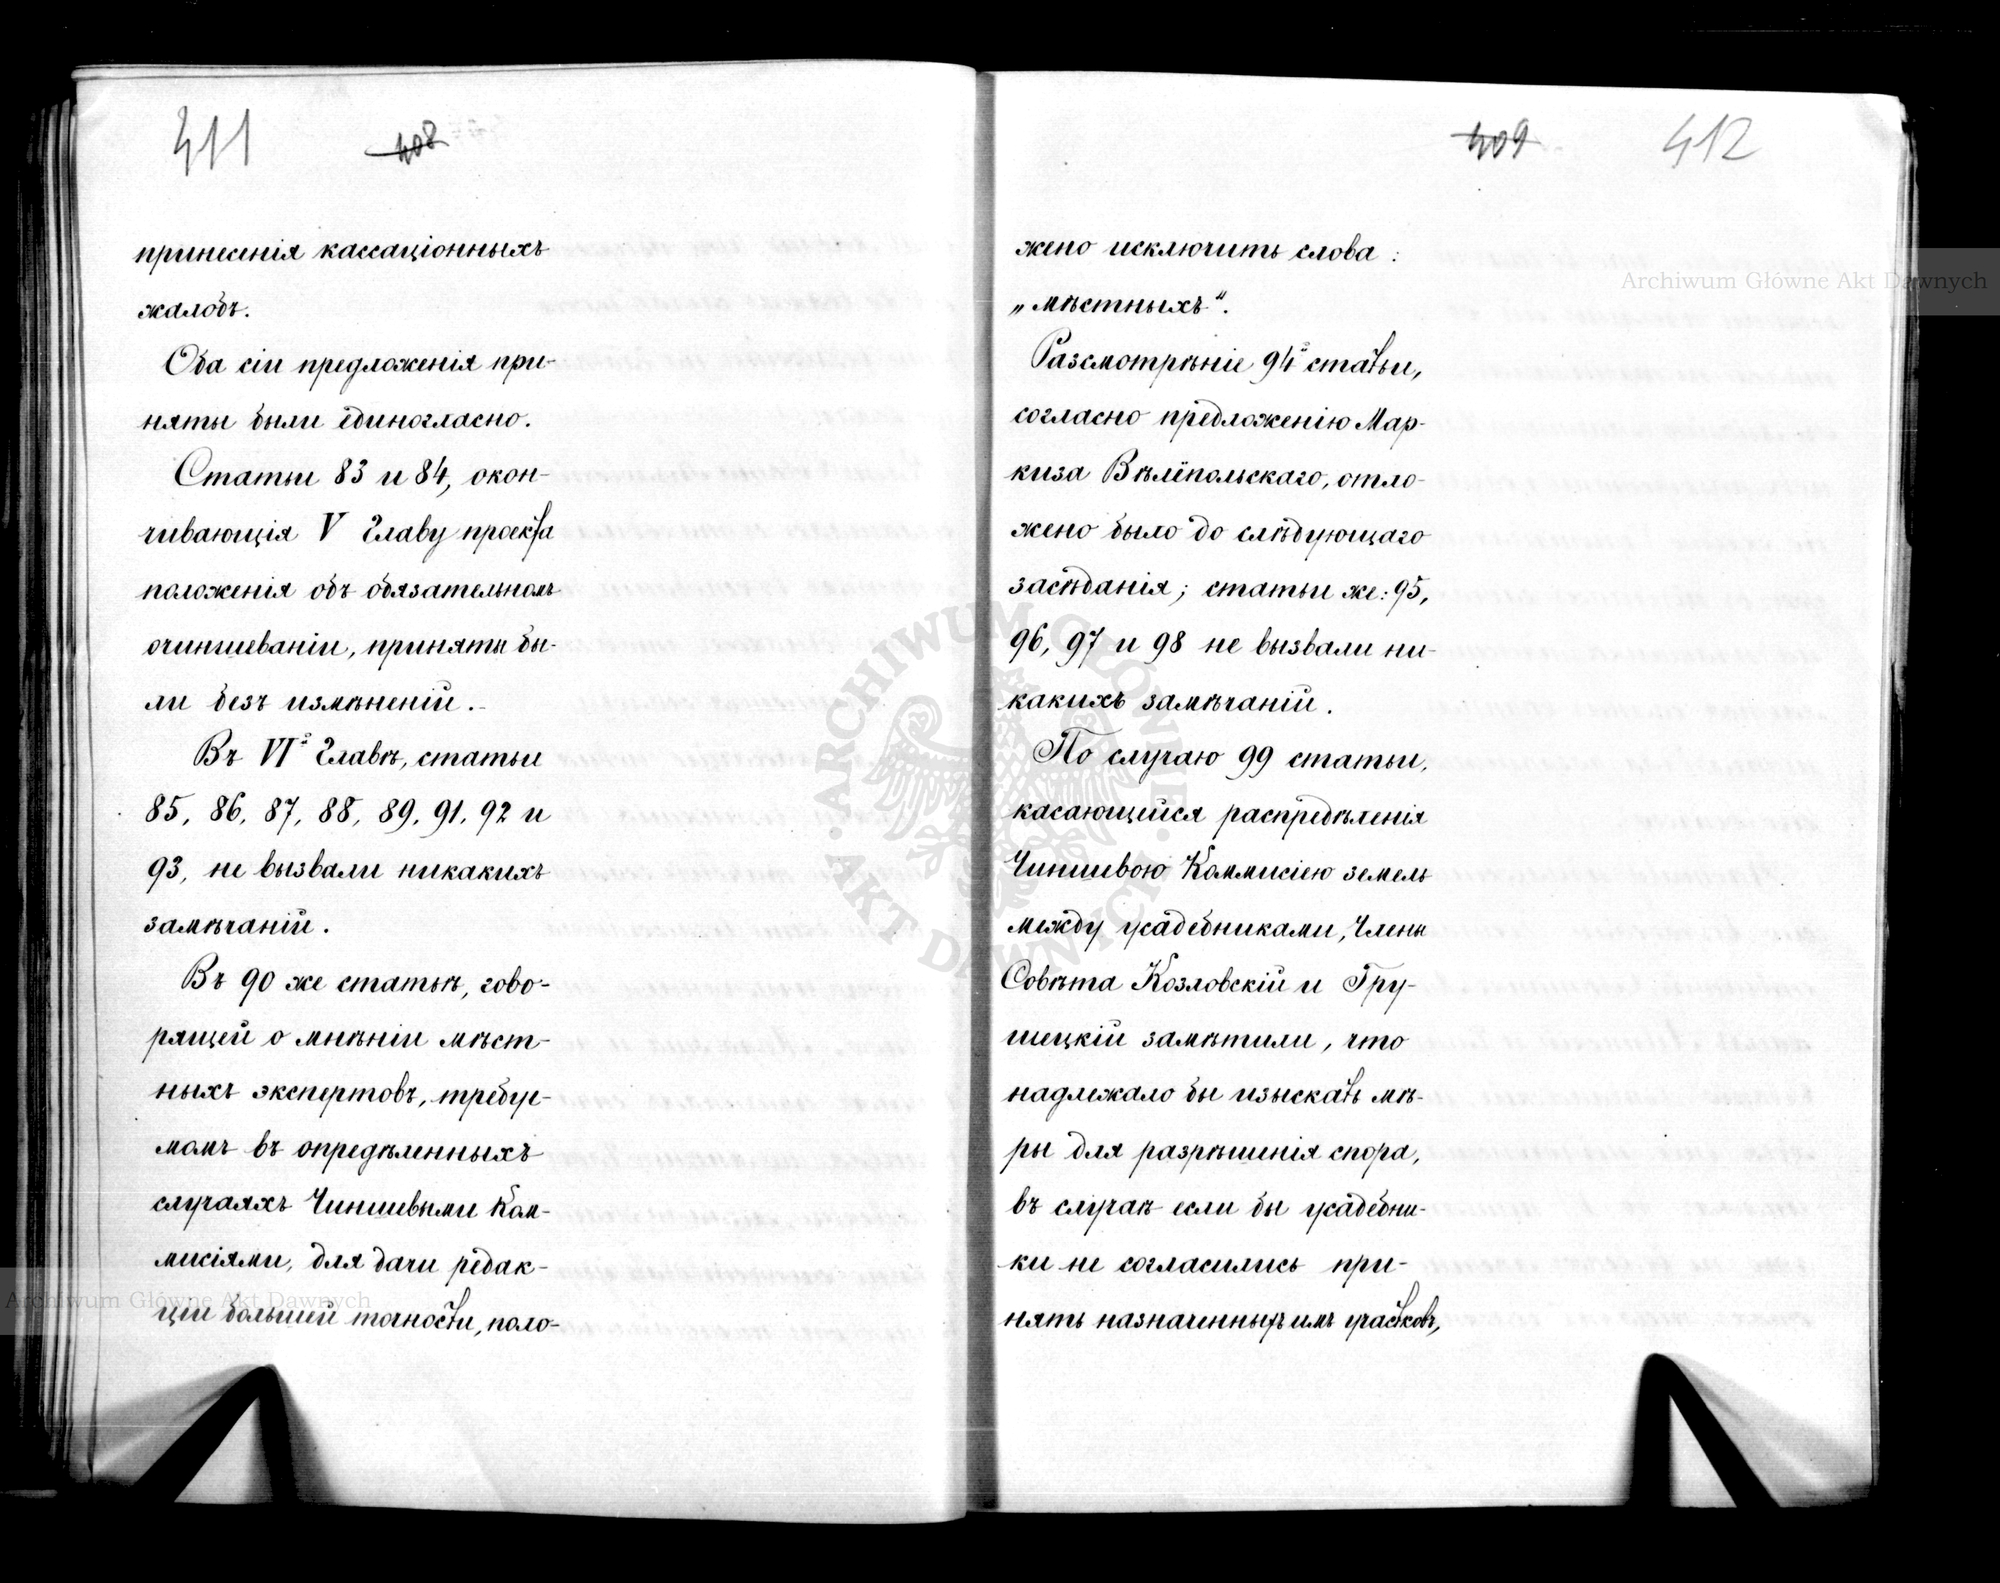 411 408
принесенія кассаціонныхъ
жалобъ.
Оба сіи предложенія при-
няты были единогласно.
Статьи 83 и 84, окон-
чивающія V Главу проекта
положенія объ обязательномъ
очиншеваніи, приняты бы-
ли безъ измѣненій.
Въ VIй Главѣ, статьи
85, 86, 87, 88, 89, 91, 92 и
93, не вызвали никакихъ
замѣчаній.
Въ 90 же статьѣ, гово-
рящей о мнѣніи мѣст-
ныхъ экспертовъ, требуе-
момъ въ опредѣленныхъ
случаяхъ Чиншевыми Ком-
мисіями, для дачи редак-
ціи большей точности, поло-
409 412
жено исключить слова:
„мѣстныхъ“.
Разсмотрѣніе 94й статьи,
согласно предложенію Мар-
киза Вѣлепольскаго, отло-
жено было до слѣдующаго
засѣданія; статьи же: 95,
96, 97 и 98 не вызвали ни-
какихъ замѣчаній.
По случаю 99 статьи,
касающейся распредѣленія
Чиншевою Коммисіею земель
между усадебниками, Члены
Совѣта Козловскій и Гру-
шецкій замѣтили, что
надлежало бы изыскать мѣ-
ры для разрѣшенія спора,
въ случаѣ если бы усадебни-
ки не согласились при-
нять назначенныхъ имъ участковъ,
Archiwum Główne Akt Dawnych
Archiwum Główne Akt Dawnych
ARCHIWUM GŁÓWNE AKT DAWNYCH